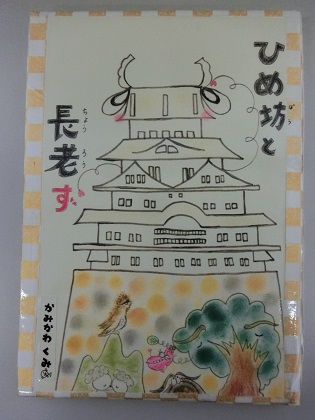 ひめ坊と
ぼう
長老ず
ちょうろう
かみかわくみ